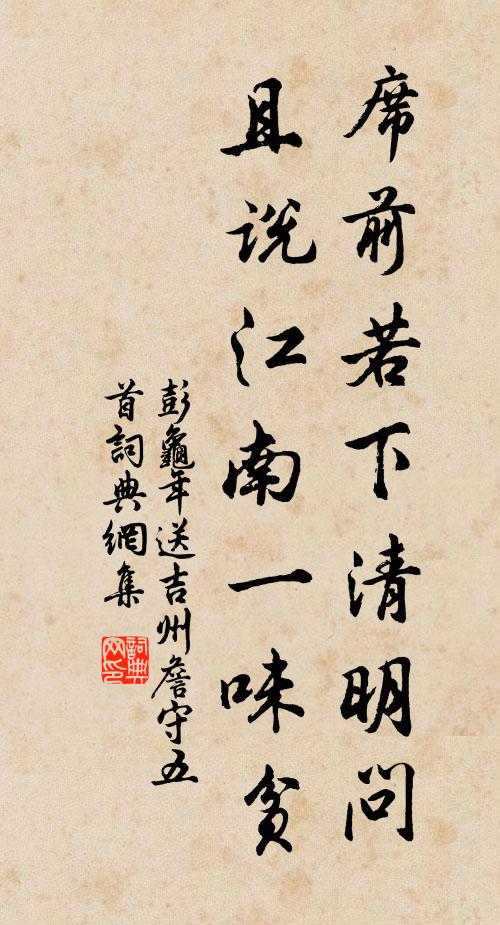 席前若下清明問
且說江南一味貧
彭龜年送吉州詹守五
首詞典網集
詞典
网印